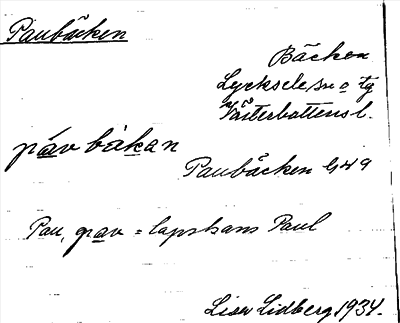 Paubäcken
Bäcken
Lycksele sn o tg
Västerbottens l.
påv bákan
Paubäcken G49
Pau, pav = lapskans Paul
Lisa Lidberg 1934.